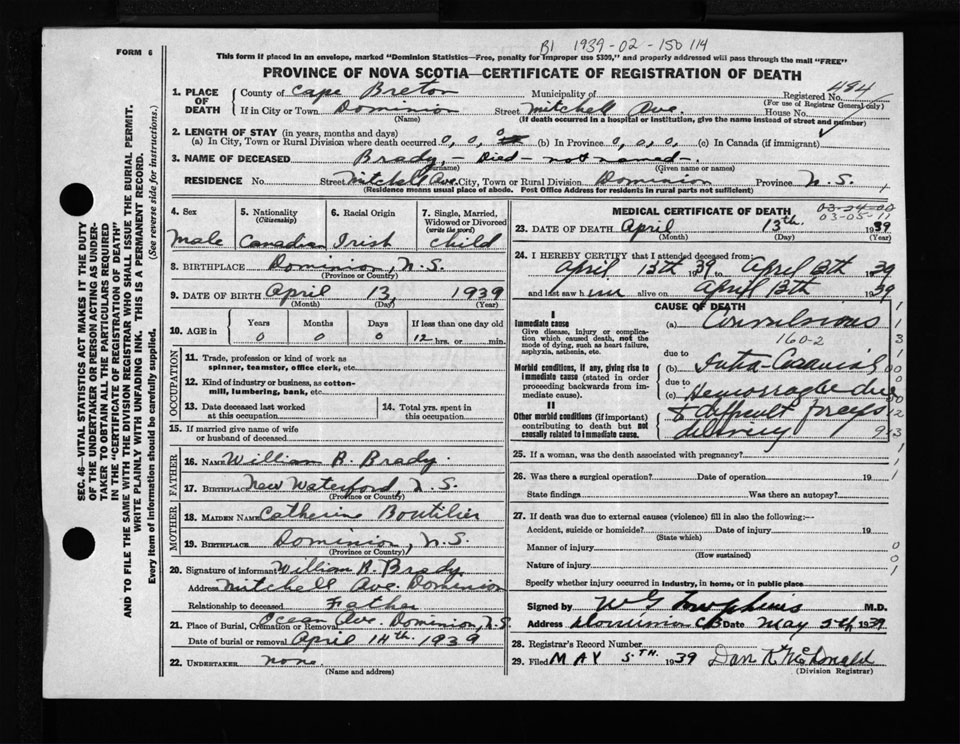 B1 1939-02-150114
FORM 6
This form if placed in an envelope, marked "Dominion Statistics—Free, penalty for improper use $300," and properly addressed will pass through the mail "FREE"
PROVINCE OF NOVA SCOTIA—CERTIFICATE OF REGISTRATION OF DEATH
1. PLACE OF DEATH
County of Cape Breton Municipality of Registered No. 484
(For use of Registrar General only)
If in City or Town Dominion Street Mitchell Ave. House No.
(Name) (If death occurred in a hospital or institution, give the name instead of street and number)
2. LENGTH OF STAY (in years, months and days)
(a) In City, Town or Rural Division where death occurred 0, 0, 0 (b) In Province 0, 0, 0. (c) In Canada (if immigrant)
3. NAME OF DECEASED Brady, – Died – not named –.
(Surname) (Given name or names)
RESIDENCE No. Street Mitchell Ave. City, Town or Rural Division Dominion Province N.S.
(Residence means usual place of abode. Post Office Address for residents in rural parts not sufficient)
4. Sex
Male
5. Nationality
(Citizenship)
Canadian
6. Racial Origin
Irish
7. Single, Married, Widowed or Divorced
(write the word)
child
8. BIRTHPLACE Dominion, N.S.
(Province or Country)
9. DATE OF BIRTH April 13, 1939
(Month) (Day) (Year)
10. AGE in
Years Months Days If less than one day old
0 0 0 12 hrs. or min.
OCCUPATION
11. Trade, profession or kind of work as spinner, teamster, office clerk, etc.
12. Kind of industry or business, as cotton-mill, lumbering, bank, etc.
13. Date deceased last worked at this occupation
14. Total yrs. spent in this occupation
15. If married give name of wife or husband of deceased
FATHER
16. NAME William B. Brady.
17. BIRTHPLACE New Waterford, N.S.
(Province or Country)
MOTHER
18. MAIDEN NAME Catherine Boutilier
19. BIRTHPLACE Dominion, N.S.
(Province or Country)
20. Signature of informant William B. Brady
Address Mitchell Ave. Dominion
Relationship to deceased Father
21. Place of Burial, Cremation or Removal Ocean Ave. Dominion, N.S.
Date of burial or removal April 14th. 1939
22. UNDERTAKER none.
(Name and address)
MEDICAL CERTIFICATE OF DEATH
03-24-00
03-05-11
23. DATE OF DEATH April 13th. 1939
(Month) (Day) (Year)
24. I HEREBY CERTIFY that I attended deceased from:
April 13th 1939 to April 13th 1939
and last saw him alive on April 13th 1939
CAUSE OF DEATH
I
Immediate cause
Give disease, injury or complication which caused death, not the mode of dying, such as heart failure, asphyxia, asthenia, etc.
(a) Convulsions
160-2
due to
Morbid conditions, if any, giving rise to immediate cause (stated in order proceeding backwards from immediate cause).
(b) Intra-Cranial
due to
(c) Hemorragbe due
II
Other morbid conditions (if important) contributing to death but not causally related to immediate cause.
to difficult forceps
delivery
25. If a woman, was the death associated with pregnancy?
26. Was there a surgical operation? Date of operation 19
State findings Was there an autopsy?
27. If death was due to external causes (violence) fill in also the following:—
Accident, suicide or homicide? Date of injury 19
(State which)
Manner of injury
(How sustained)
Nature of injury
Specify whether injury occurred in industry, in home, or in public place
Signed by W G Tompkins M.D.
Address Dominion CB Date May 5th 1939
28. Registrar's Record Number
29. Filed MAY 5TH. 1939 Dan R McDonald
(Division Registrar)
SEC. 46—VITAL STATISTICS ACT MAKES IT THE DUTY
OF THE UNDERTAKER OR PERSON ACTING AS UNDERTAKER TO OBTAIN ALL THE PARTICULARS REQUIRED
IN THE "CERTIFICATE OF REGISTRATION OF DEATH"
AND TO FILE THE SAME WITH THE DIVISION REGISTRAR WHO SHALL ISSUE THE BURIAL PERMIT.
WRITE PLAINLY WITH UNFADING INK. THIS IS A PERMANENT RECORD.
Every item of information should be carefully supplied. (See reverse side for instructions.)